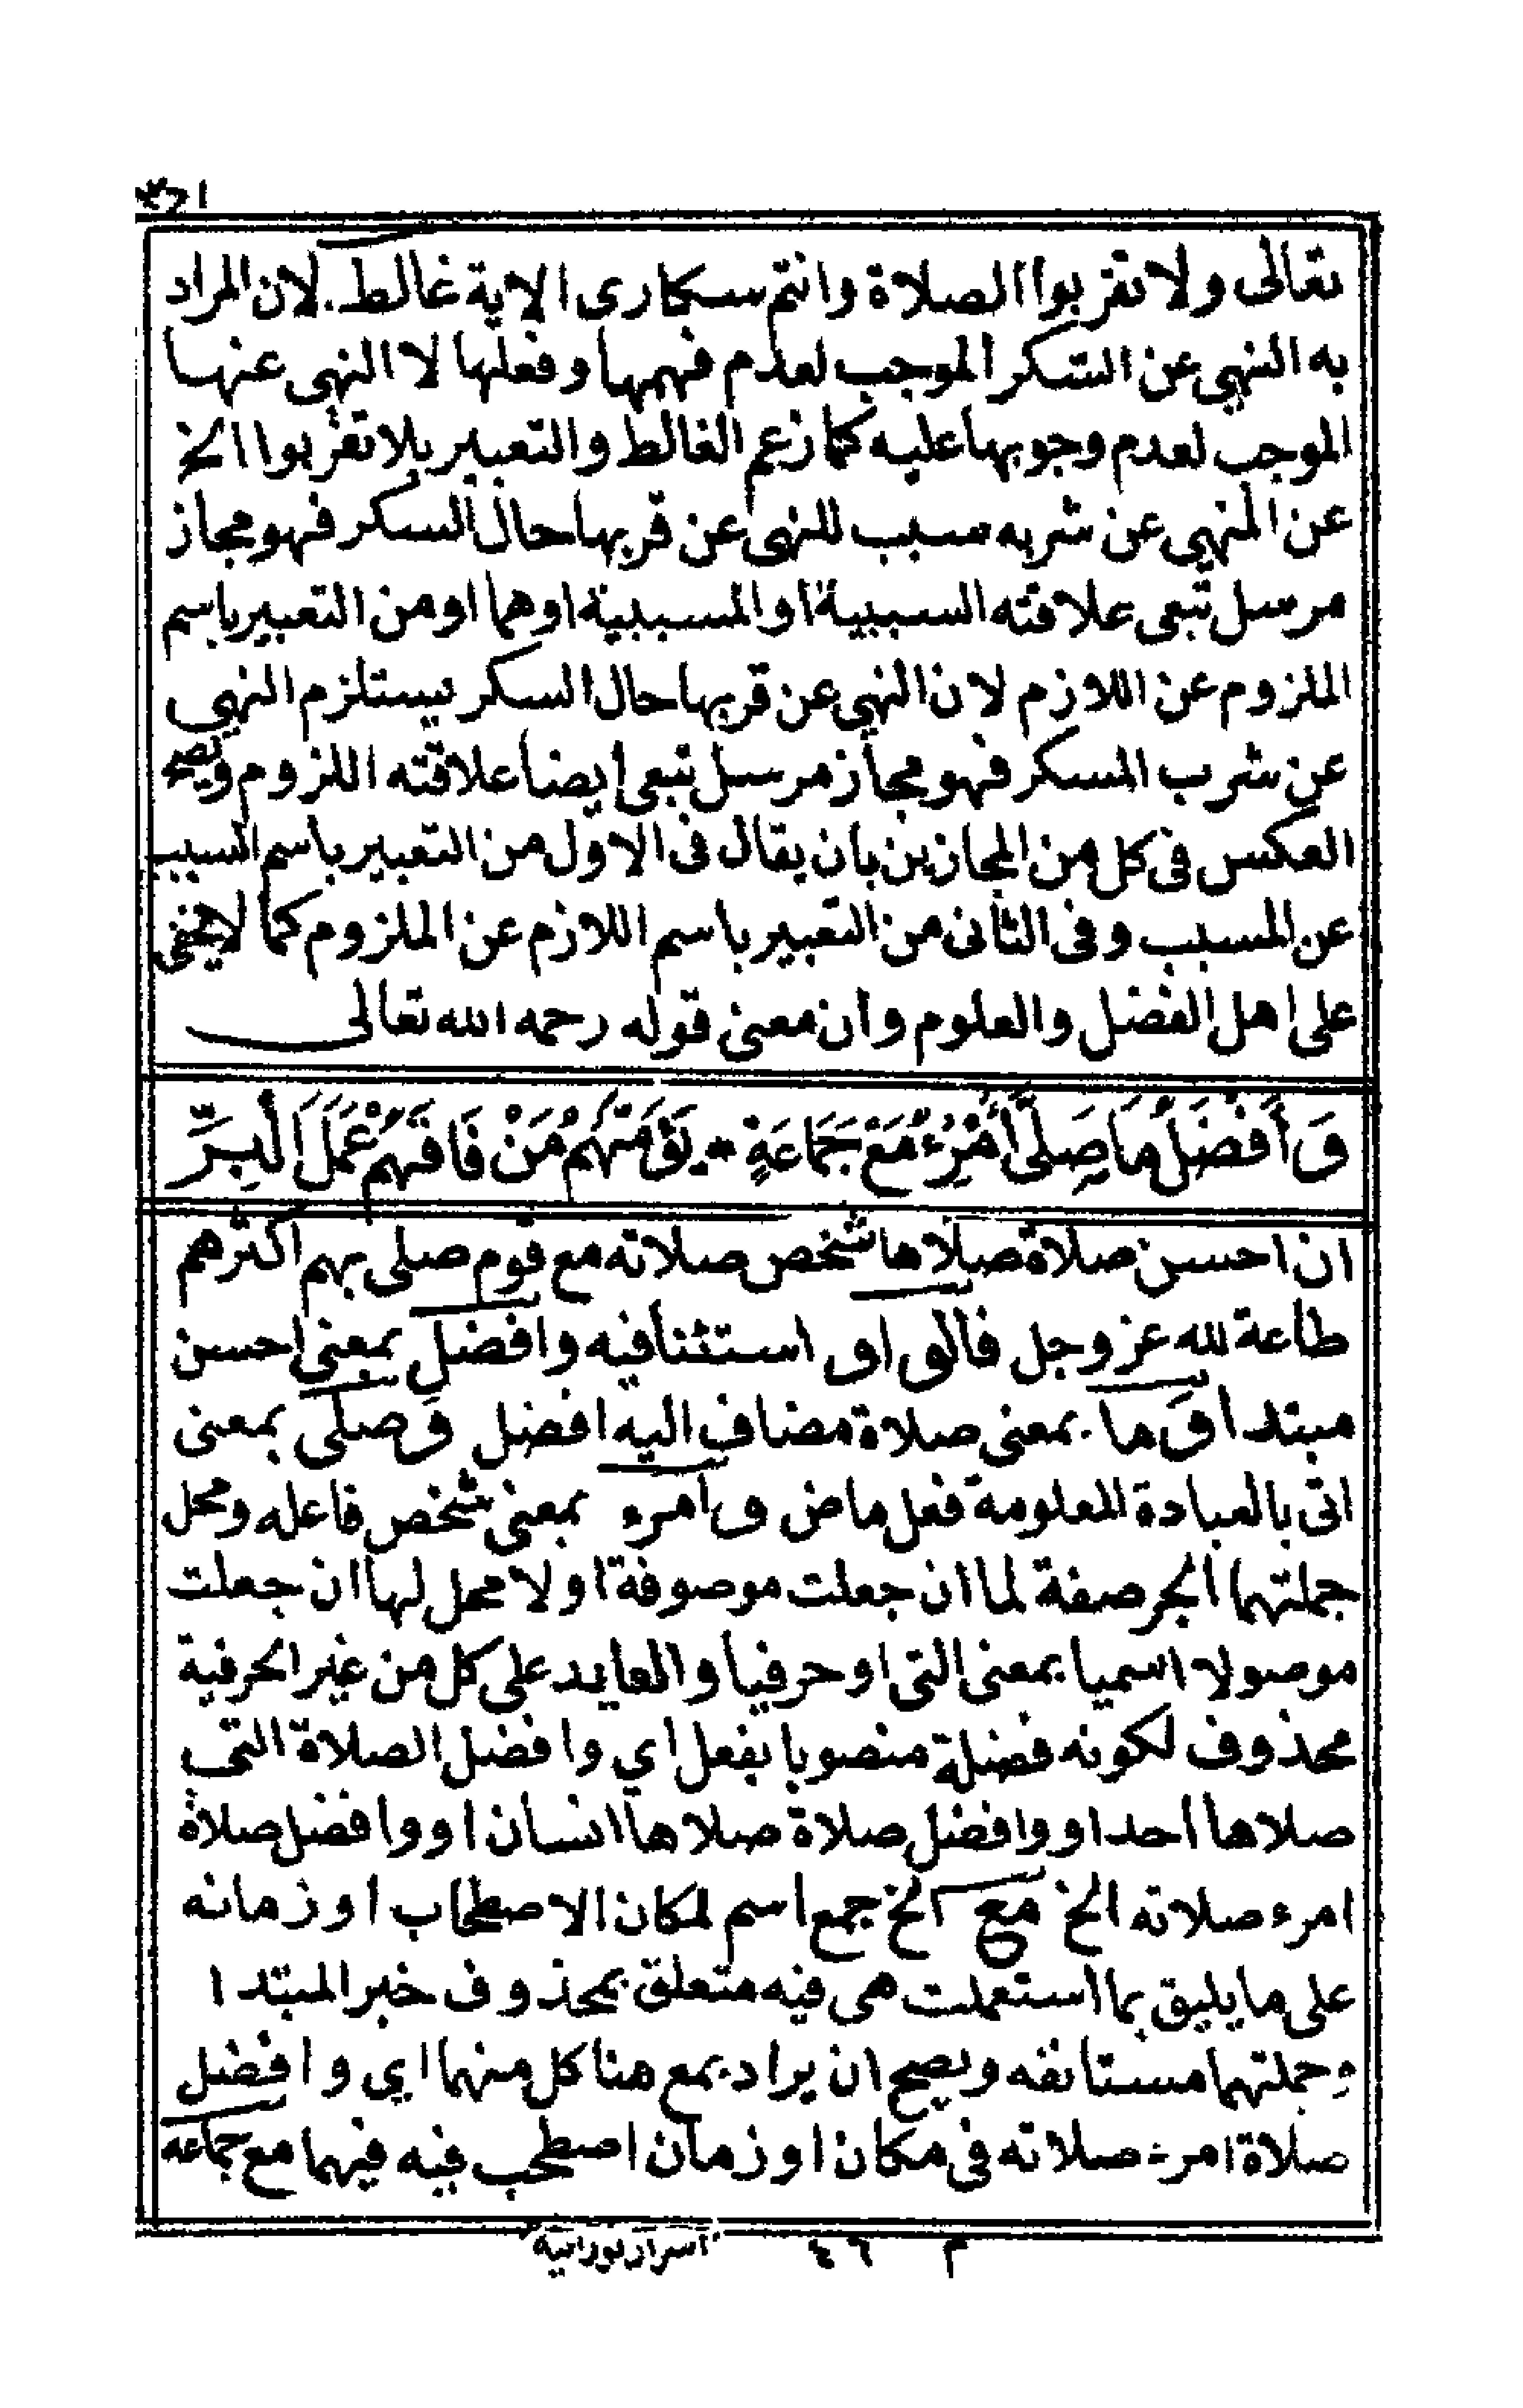 ٣٦١
تعالى ولا تقربوا الصلاة وانتم سكارى الاية غالط. لان المراد
به النهي عن السكر الموجب لعدم فهمها وفعلها لا النهى عنها
الموجب لعدم وجوبها عليه كما زعم الغالط والتعبير بلا تقربوا الخ
عن المنهي عن شربه سبب للنهى عن قربها حال السكر فهو مجاز
مرسل تبعى علاقته السببية او المسببية او هما او من التعبير باسم
الملزوم عن اللازم لان النهي عن قربها حال السكر يستلزم النهي
عن شرب المسكر فهو مجاز مرسل تبعى ايضا علاقته اللزوم ويصح
العكس فى كل من المجازين بان يقال فى الاول من التعبير باسم السبب
عن المسبب وفى الثانى من التعبير باسم اللازم عن الملزوم كما لا يخفى
على اهل الفضل والعلوم وان معنى قوله رحمه الله تعالى
وَأَفْضَلُ مَا صَلَّى أَمْرُءٌ مَعَ جَمَاعَةٍ * يَؤُمُّهُمُ مَنْ فَاقَهُمْ عَمَلَ الْبِرِّ
ان احسن صلاة صلاها شخص صلاته مع قوم صلى بهم اكثرهم
طاعة لله عز وجل فالواو استئنافيه وافضل بمعنى احسن
مبتدا وما بمعنى صلاة مضاف اليه افضل وصلى بمعنى
اتى بالعبادة المعلومة فعل ماض وامرء بمعنى شخص فاعله ومحل
جملتهما الجر صفة لما ان جعلت موصوفة او لا محل لها ان جعلت
موصولا اسميا بمعنى التى او حرفيا والعايد على كل من غير الحرفية
محذوف لكونه فضلة منصوبا بفعل اي وافضل الصلاة التي
صلاها احد او وافضل صلاة صلاها انسان او وافضل صلاة
امرء صلاته الخ مع الخ جمع اسم لمكان الاصطحاب او زمانه
على ما يليق بما استعملت هى فيه متعلق بمحذوف خبر المبتدا
وجملتهما مستانفه ويصح ان يراد بمع هنا كل منهما اي وافضل
صلاة امرء صلاته في مكان او زمان اصطحب فيه فيهما مع جماعه
م ٤٦ اسرار نورانية